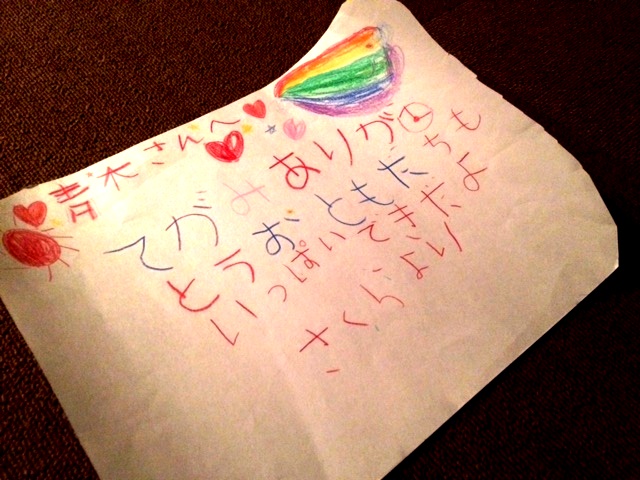 青木さんへ
てがみありが
とうおともだちも
いっぱいできだよ
さくらより